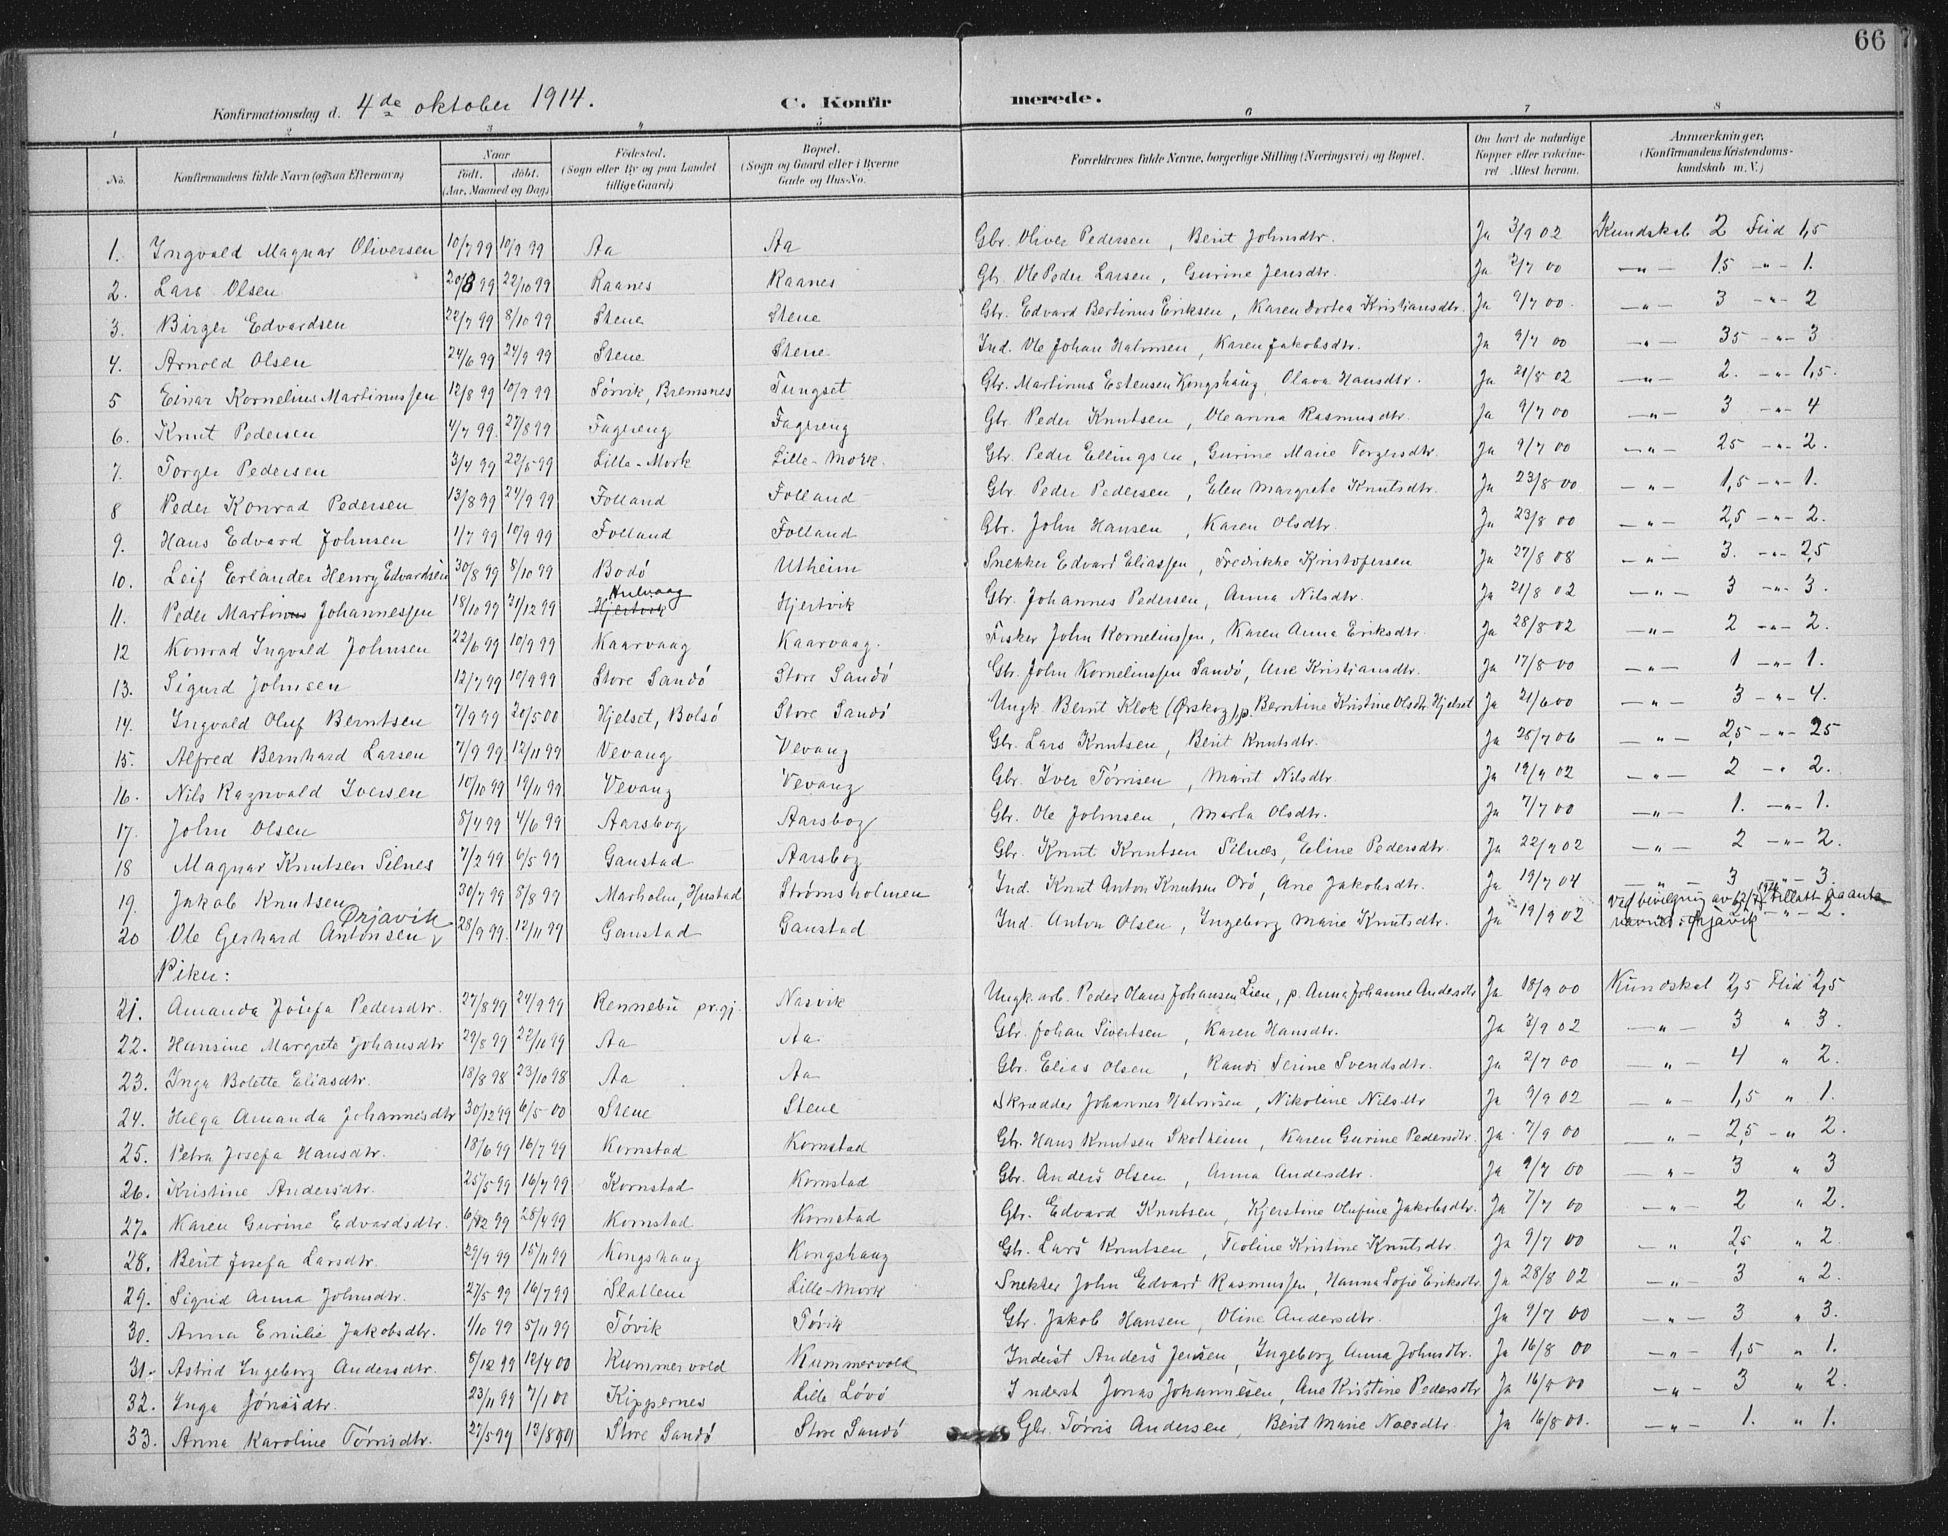 66
Konfirmationsdag d. 4de oktober 1914. C. Konfirmerede.
1 2 3 4 5 6 7 8
No. Konfirmandens fulde Navn (ogsaa Efternavn) Naar født. døbt. (Aar, Maaned og Dag) Fødested. (Sogn eller By og paa Landet tillige Gaard) Bopæl. (Sogn og Gaard eller i Byerne Gade og Hus-No. Forældrenes fulde Navne, borgerlige Stilling (Næringsvei) og Bopæl. Om havt de naturlige Kopper eller vakcineret. Attest herom. Anmærkninger. (Konfirmandens Kristendomskundskab m. V.)
1. Ingvald Magnar Oliversen 10/7 99 10/9 99 Aa Aa Gbr. Oliver Pedersen, Berit Johnsdtr. Ja 3/9 02 Kundskab 2 Flid 1,5
2. Lars Olsen 20/8 99 22/10 99 Raanes Raanes Gbr. Ole Peder Larsen, Gurine Jensdtr. Ja 2/7 00 —"— 1,5 —"— 1.
3. Birger Edvardsen 22/7 99 8/10 99 Stene Stene Gbr. Edvard Bertinus Eriksen, Karen Dortea Kristiansdtr. Ja 9/7 00. —"— 3 —"— 2
4. Arnold Olsen 24/6 99 24/9 99 Stene Stene Ind. Ole Johan Halvorsen, Karen Jakobsdtr. Ja 9/7 00 —"— 3,5 —"— 3
5 Einar Kornelius Martinussen 12/8 99 10/9 99 Sørvik, Bremsnes Tungset Gbr. Martinus Estensen Kongshaug, Olava Hansdtr. Ja 21/8 02 —"— 2. —"— 1,5.
6. Knut Pedersen 4/7 99. 27/8 99 Fagreng Fagreng Gbr. Peder Knutsen, Oleanna Rasmusdtr. Ja 9/7 00 —"— 3 —"— 4
7. Torger Pedersen 3/4 99 22/5 99 Lille-Mork Lille-Mork. Gbr. Peder Ellingsen, Gurine Marie Torgersdtr. Ja 9/7 00 —"— 2,5 —"— 2.
8 Peder Konrad Pedersen 13/8 99 24/9 99 Folland Folland Gbr. Peder Pedersen, Elen Margrete Knutsdtr. Ja 23/8 00 —"— 1,5 —"— 1.
9. Hans Edvard Johnsen 1/7 99 10/9 99 Folland Folland Gbr. John Hansen, Karen Olsdtr. Ja 23/8 00 —"— 2,5 —"— 2.
10. Leif Erlander Henry Edvardsen 30/8 99 8/10 99 Bodø Utheim Snekker Edvard Eliassen, Fredrikke Kristofersen Ja 27/8 08 —"— 3. —"— 2,5
11. Peder Martinus Johannessen 18/10 99 21/12 99 Hjertvik Hjertvik Gbr. Johannes Pedersen, Anna Nilsdtr. Ja 21/8 02 —"— 3 —"— 3.
12 Konrad Ingvald Johnsen 22/6 99 10/9 99 Kaarvaag Kaarvaag. Fisker John Kornelinssen, Karen Anna Eriksdtr. Ja 28/8 02 —"— 2 —"— 2.
13. Sigurd Johnsen 12/7 99 10/9 99 Store Sandø Store Sandø Gbr. John Kornelinssen Sandø, Ane Kristiansdtr. Ja 17/8 00 —"— 1 —"— 1.
14. Ingvald Oluf Berntsen 7/9 99 20/5 00 Hjelset, Bolsø Store Sandø Ungk. Bernt Klok (Ørskog) p. Berntine Kristine Olsdtr. Hjelset Ja 21/6 00 —"— 3 —"— 4.
15. Alfred Bernhard Larsen 7/9 99 12/11 99 Vevang Vevang Gbr. Lars Knutsen, Berit Knutsdtr. Ja 25/7 06 —"— 2,5 —"— 2,5
16. Nils Ragnvald Iversen 10/10 99 19/11 99 Vevang Vevang Gbr. Iver Tørrisen, Marit Nilsdtr Ja 19/9 02 —"— 2 —"— 2.
17. John Olsen 8/4 99 4/6 99 Aarsbog Aarsbog Gbr. Ole Johnsen, Marta Olsdtr. Ja 7/7 00 —"— 1. —"— 1.
18 Magnar Knutsen Silnes 7/2 99 6/5 99 Gaustad Aarsbog Gbr. Knut Knutsen Silnes, Eline Pedersdtr. Ja 22/9 02 —"— 2 —"— 2.
19. Jakob Knutsen 30/7 99 8/8 99 Marholm, Hustad Strømsholmen Ind. Knut Anton Knutsen Orø, Ane Jakobsdtr. Ja 19/7 04 —"— 3 —"— 3.
20 Ole Gerhard Antonsen Ørjavik 28/9 99. 12/11 99 Gaustad Gaustad Ind. Anton Olsen, Ingeborg Marie Knutsdtr. Ja 19/9 02 Ved bevilgning av tillatt aa anta navnet: Ørjavik —"— 2.
Piker:
21. Amanda Josefa Pedersdtr. 27/8 99 24/9 99 Rennebu pr.gj. Nasvik Ungk. arb. Peder Olaus Johansen Lien, p. Anna Johanne Andersdtr Ja 18/9 00 Kundskab 2,5 Flid 2,5
22. Hansine Margrete Johansdtr 29/8 99 22/10 99 Aa Aa Gbr. Johan Sivertsen, Karen Hansdtr. Ja 3/9 02 —"— 3 " 3.
23. Inga Bolette Eliasdtr. 18/8 98 23/10 98 Aa Aa Gbr. Elias Olsen, Randi Serine Svendsdtr. Ja 2/7 00 —"— 4 " 2.
24. Helga Amanda Johannesdtr 30/12 99 6/5 00 Stene Stene Skrædder Johannes Halvorsen, Nikoline Nilsdtr Ja 3/9 02 —"— 1,5 " 1.
25. Petra Josefa Hansdtr. 18/6 99 16/7 99 Kornstad Kornstad Gbr. Hans Knutsen Skotheim, Karen Gurine Pedersdtr. Ja 7/9 00 —"— 2,5 —"— 2.
26. Kristine Andersdtr. 25/5 99 16/7 99 Kornstad Kornstad Gbr. Anders Olsen, Anna Andersdtr. Ja 9/7 00 —"— 3 " 3
27. Karen Gurine Edvardsdtr. 6/12 99 28/4 99 Kornstad Kornstad Gbr. Edvard Knutsen, Kjerstine Olufine Jakobsdtr. Ja 7/7 00 —"— 2 " 2.
28. Berit Josefa Larsdtr. 29/9 99 15/11 99 Kongshaug Kongshaug Gbr. Lars Knutsen, Tioline Kristine Knutsdtr. Ja 9/7 00 —"— 2,5 " 2
29. Sigrid Anna Johnsdtr. 27/5 99 16/7 99 Slatlem Lille-Mork Snekker John Edvard Rasmussen, Hanna Sofie Eriksdtr. Ja 28/8 02 —"— 3 " 2.
30. Anna Emilie Jakobsdtr. 1/10 99 5/11 99 Tøvik Tøvik Gbr. Jakob Hansen, Oline Andersdtr. Ja 9/7 00 —"— 3 " 3.
31. Astrid Ingeborg Andersdtr. 5/12 99 12/4 00 Kummervold Kummervold Inderst Anders Jensen, Ingeborg Anna Johnsdtr. Ja 16/8 00 —"— 1,5 " 1.
32. Inga Jónasdtr. 23/11 99 7/1 00 Kippernes Lille Løvø Inderst Jonas Johannesen, Ane Kristine Pedersdtr Ja 16/8 00 —"— 3 " 2.
33. Anna Karoline Tørrisdtr. 27/5 99 13/8 99 Store Sandø Store Sandø Gbr. Tørris Andersen, Berit Marie Noesdtr. Ja 16/8 00. —"— 1. " 1.